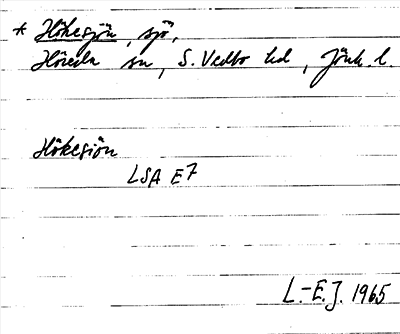 * Hökesjön, sjö,
Höreda sn, S. Vedbo hd, Jönk. l.
Hökesjön
LSA E7
L.-E.J. 1965